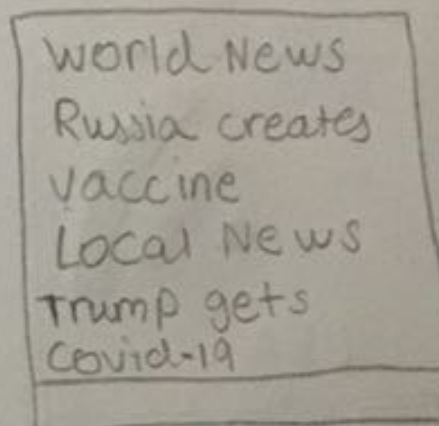 World News
Russia creates
vaccine
Local News
Trump gets
Covid-19